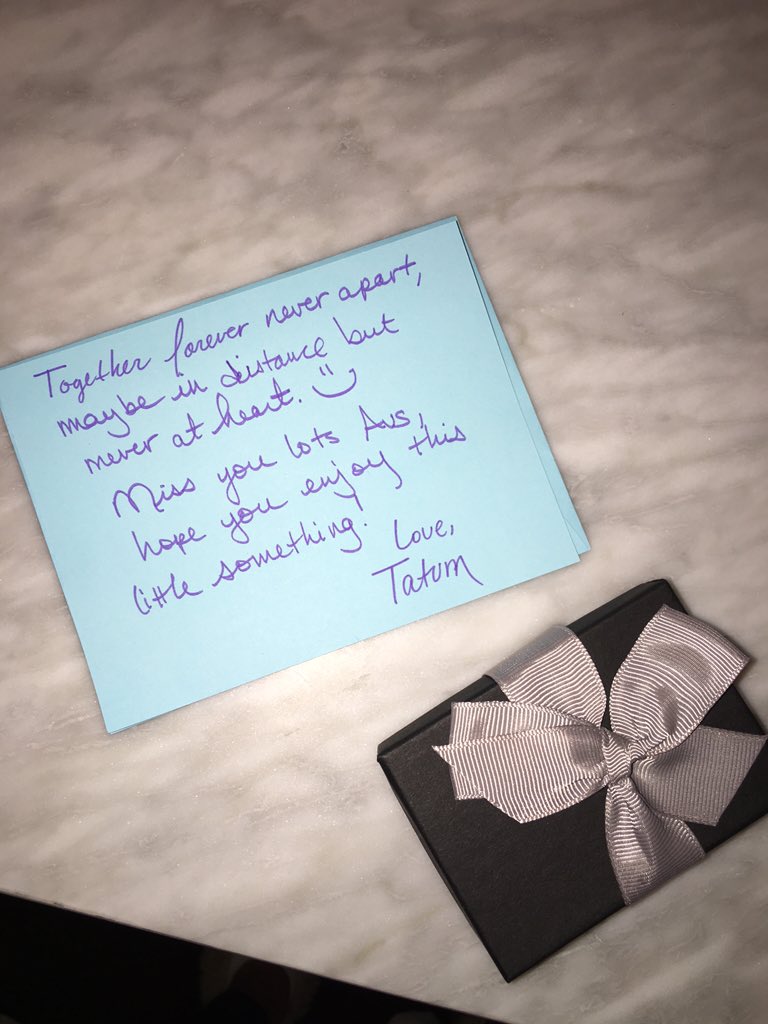 Together forever never apart,
maybe in distance but
never at heart. :)
Miss you lots Aus,
hope you enjoy this
little something!
Love,
Tatum